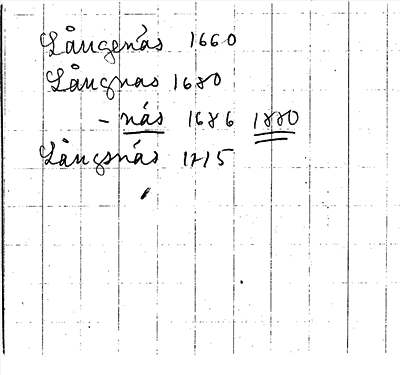 Långenäs 1660
Långnas 1680
- näs 1686 1880
Långsnäs 1715